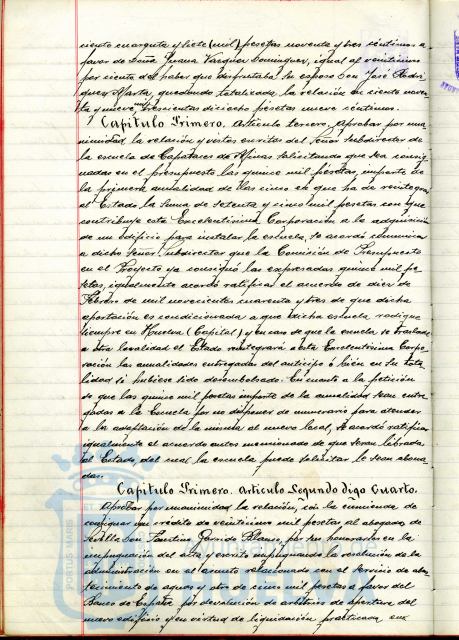 ciento cuarenta y siete (mil) pesetas noventa y tres céntimos a
favor de Doña Juana Vazquez Dominguez, igual al veinticinco
por ciento del haber que disfrutaba su esposo Don José Rodri
guez Marta, quedando totalizada la relación en ciento noven
ta y nueve mil trescientas dieciocho pesetas nueve céntimos.
Capitulo Primero. Articulo tercero. Aprobar por una
nimidad, la relación y vistos escritos del Señor Subdirector de
la escuela de Capataces de Minas solicitando que sea consig
nadas en el presupuesto las quince mil pesetas, importe de
la primera anualidad de las cinco en que ha de reintegrar
al Estado, la suma de setenta y cinco mil pesetas con que
contribuye esta Excelentisima Corporación a la adquisición
de un edificio para instalar la escuela, se acordó comunicar
a dicho Señor Subdirector que la Comisión de Presupuesto
en el Proyecto ya consignó las expresadas quince mil pe
setas, igualmente acordó ratificar el acuerdo de diez de
Febrero de mil novecientos cuarenta y tres de que dicha
aportación es condicionada a que dicha escuela radique
siempre en Huelva (Capital) y en caso de que la escuela se traslade
a otra localidad el Estado reintegrará a esta Excelentisima Corpo-
ración las anualidades entregadas del anticipo ó bién en su tota
lidad si hubiese sido desembolsado. En cuanto a la petición
de que las quince mil pesetas importe de la anualidad sean entre
gadas a la Escuela por no disponer de numerario para atender
a la adaptación de la misma al nuevo local, se acordó ratificar
igualmente el acuerdo antes mencionado de que seran libradas
al Estado, del cual la escuela puede solicitar le sean abona
das.
Capitulo Primero. Articulo Segundo digo Cuarto.
Aprobar por unanimidad la relación, con la enmienda de
consignar un crédito de veinticinco mil pesetas al abogado, de
Sevilla Don Faustino Garrido Blanco, por sus honorarios en la
impugnación del
administración en el asunto relacionado con el Servicio de abas
tecimiento de aguas y otro de cinco mil pesetas a favor del
Banco de España, por devolución de arbitrios de apertura del
nuevo edificio y en virtud de liquidación practicada, sus
PORTUS MARIS
HUELVA